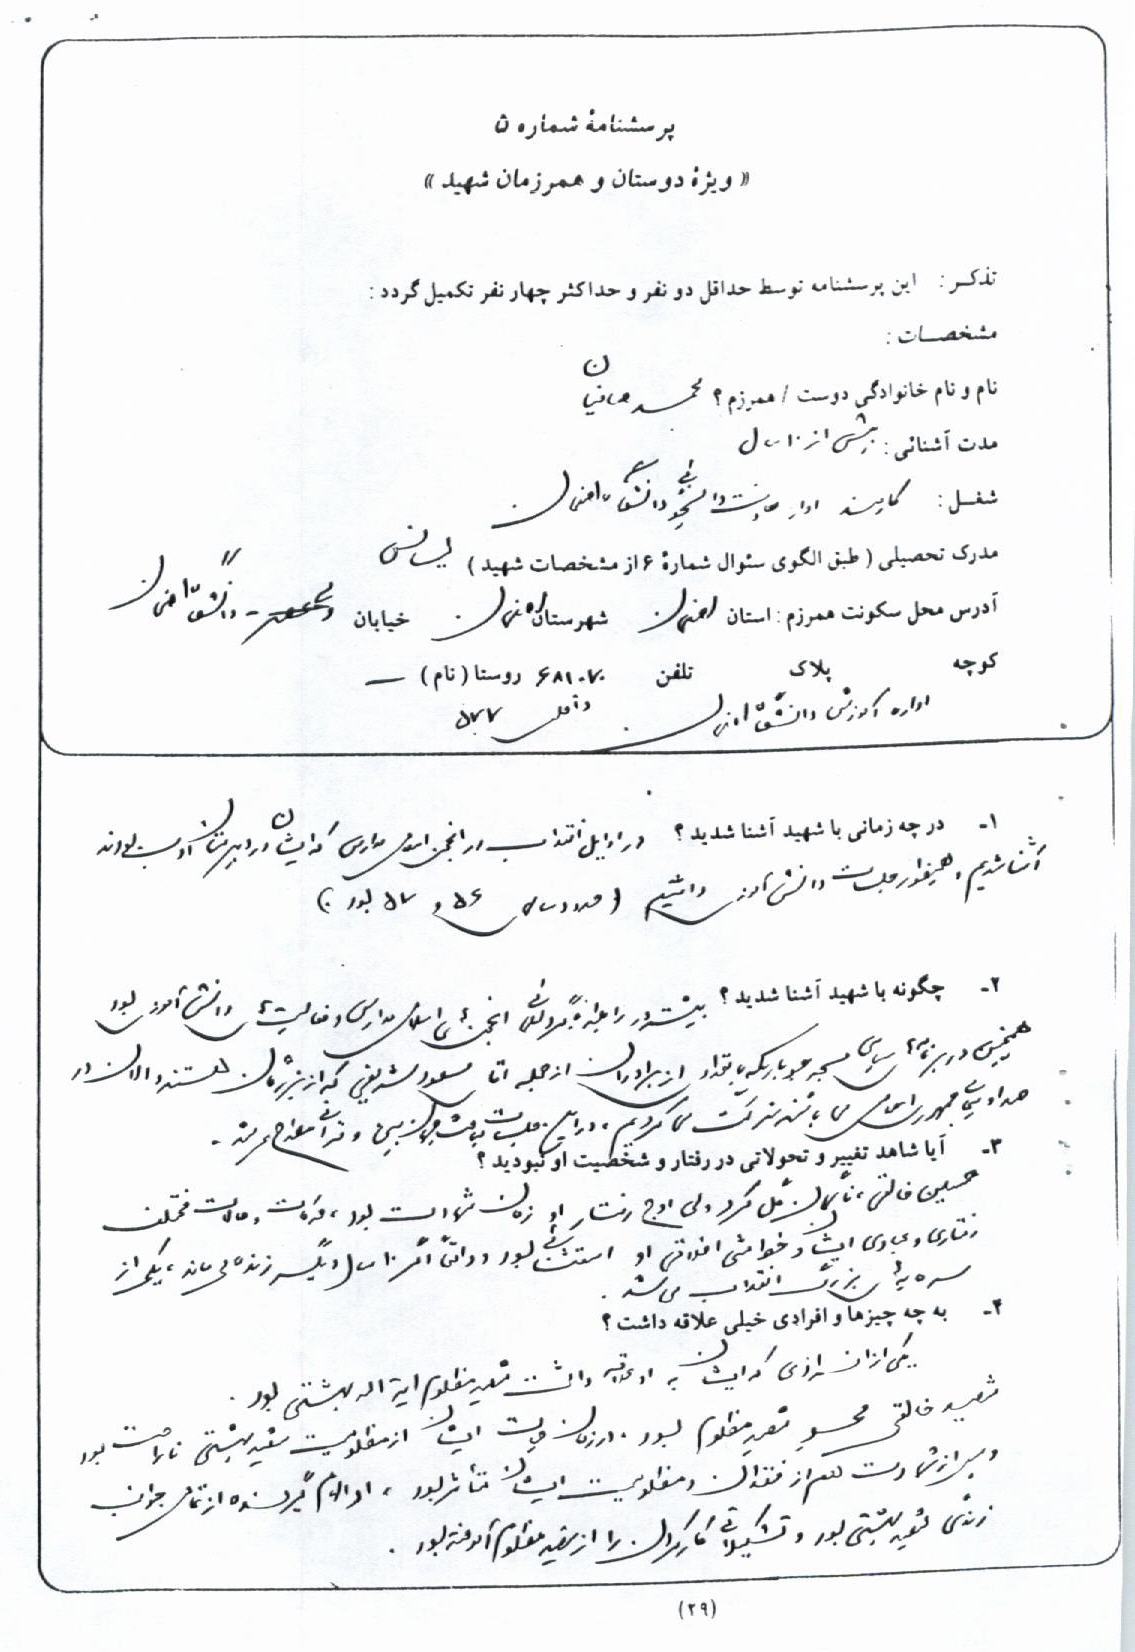 پرسشنامهٔ شماره ۵
« ویژهٔ دوستان و همرزمان شهید »
تذکـر : این پرسشنامه توسط حداقل دو نفر و حداکثر چهار نفر تکمیل گردد :
مشخصـات :
نام و نام خانوادگی دوست / همرزم ؟ محمد صافیان
مدت آشنائی : بیش از ۱۰ سال
شغـل : کارمند اداره معاونت دانشجوئی دانشگاه اصفهان
مدرک تحصیلی ( طبق الگوی سئوال شمارهٔ ۶ از مشخصات شهید ) لیسانس
آدرس محل سکونت همرزم : استان اصفهان شهرستان اصفهان خیابان - دانشگاه اصفهان
کوچه پلاک تلفن ۶۸۱۰۷۰ روستا ( نام ) —
اداره آموزش دانشگاه اصفهان داخلی ۵۷۷
۱- در چه زمانی با شهید آشنا شدید ؟ در اوایل انقلاب در انجمن اسلامی مدارس که ایشان در دبیرستان ادب بودند
آشنا شدیم و همینطور جلسات دانش آموزی داشتیم ( حدود سال ۵۶ و ۵۷ بود . )
۲- چگونه با شهید آشنا شدید ؟ بیشتر در رابطه با گردهمائی انجمن های اسلامی مدارس و فعالیت های دانش آموزی بود
همچنین در برنامه های سیاسی مسجد جوباره که با تعداد از برادران از جمله آقای مسعود شریفی که از عزیزان هستند و الان در
صدا و سیمای جمهوری اسلامی می باشند شرکت می کردیم ، در این جلسات بحث جهان بینی و قرآنی مطرح می شد .
۳- آیا شاهد تغییر و تحولاتی در رفتار و شخصیت او نبودید ؟
حسین خالقی تکامل کرد ولی اوج رفتار او زمان شهادت بود ، حرکات و حالات مختلف
رفتاری و عبادی ایشان و خواص اخلاقی او استثنائی بود و واقعاً اگر ۱۰ سال دیگر زنده می ماند ، یکی از
سرمایه های بزرگ انقلاب می شد .
۴- به چه چیزها و افرادی خیلی علاقه داشت ؟
یکی از افرادی که ایشان به او علاقه داشت شهید مظلوم آیة الله بهشتی بود .
شهید خالقی شهید مظلوم بود . در زمان حیات ایشان از مظلومیت شهید بهشتی ناراحت بود
و پس از شهادت هم از فقدان و مظلومیت ایشان متأثر بود ، او الهام گیرنده از تمامی جوانب
زندگی شهید بهشتی بود و تشکیلاتی کار کردن را از شهید مظلوم آموخته بود .
(۲۹)